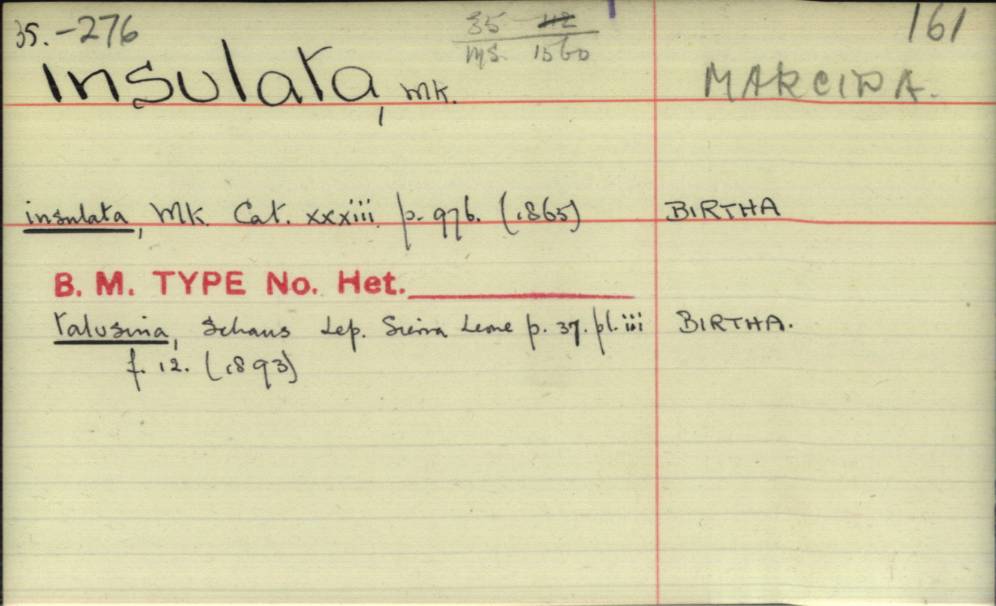 35.-276
35 112
MS. 1560
161
insulata, Wlk.
MARCIPA.
insulata, Wlk Cat. xxxiii. p. 976. (1865) BIRTHA
B. M. TYPE No. Het.
talusina, Schaus Lep. Sierra Leone p. 37. pl. iii BIRTHA.
f. 12. (1893)